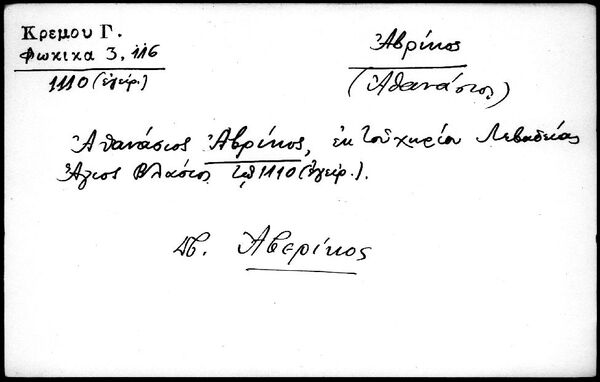 Κρεμου Γ.
Φωκικα 3, 116
1110 (ἐγχειρ.)
Ἀβρίκος
(Ἀθανάσιος)
Ἀθανάσιος Ἀβρίκος, ἐκ τοῦ χωρίου Λεβαδείας
Ἅγιος Βλάσιος τῷ 1110 (ἐγχειρ.).
πβ. Ἀβερίκος